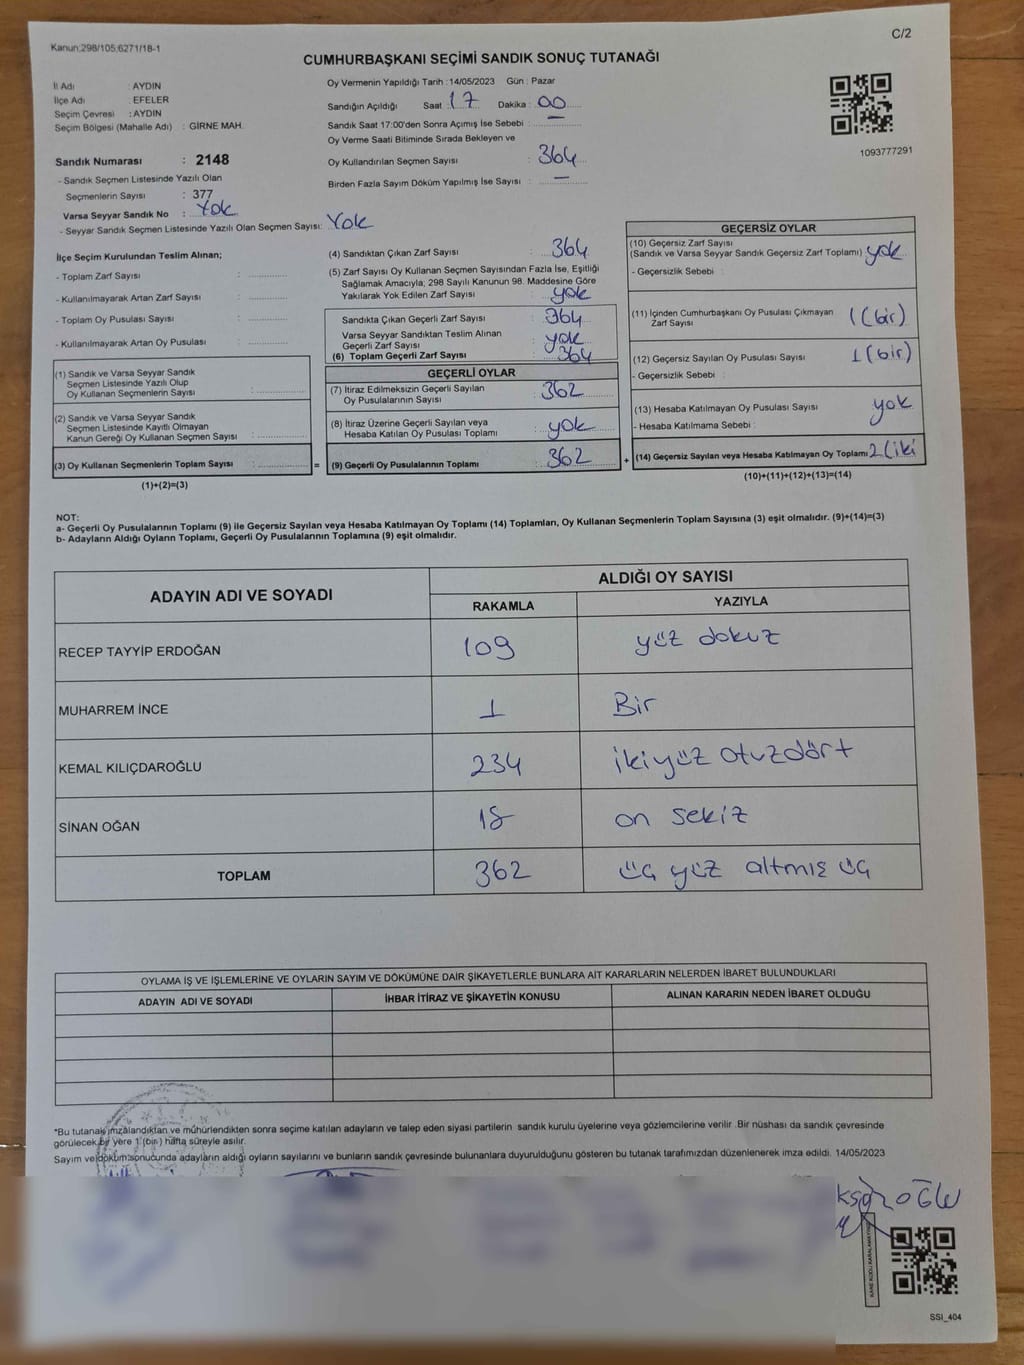 Kanun;298/105;6271/18-1
C/2
CUMHURBAŞKANI SEÇİMİ SANDIK SONUÇ TUTANAĞI
İl Adı : AYDIN
İlçe Adı : EFELER
Seçim Çevresi : AYDIN
Seçim Bölgesi (Mahalle Adı) : GİRNE MAH.
Sandık Numarası : 2148
- Sandık Seçmen Listesinde Yazılı Olan
Seçmenlerin Sayısı : 377
Varsa Seyyar Sandık No : Yok
- Seyyar Sandık Seçmen Listesinde Yazılı Olan Seçmen Sayısı: Yok
Oy Vermenin Yapıldığı Tarih : 14/05/2023 Gün : Pazar
Sandığın Açıldığı Saat : 17 Dakika : 00
Sandık Saat 17:00'den Sonra Açımış İse Sebebi : —
Oy Verme Saati Bitiminde Sırada Bekleyen ve
Oy Kullandırılan Seçmen Sayısı : 364
Birden Fazla Sayım Döküm Yapılmış İse Sayısı : —
1093777291
İlçe Seçim Kurulundan Teslim Alınan;
- Toplam Zarf Sayısı :
- Kullanılmayarak Artan Zarf Sayısı :
- Toplam Oy Pusulası Sayısı :
- Kullanılmayarak Artan Oy Pusulası :
(1) Sandık ve Varsa Seyyar Sandık
Seçmen Listesinde Yazılı Olup
Oy Kullanan Seçmenlerin Sayısı :
(2) Sandık ve Varsa Seyyar Sandık
Seçmen Listesinde Kayıtlı Olmayan
Kanun Gereği Oy Kullanan Seçmen Sayısı :
(3) Oy Kullanan Seçmenlerin Toplam Sayısı :
(1)+(2)=(3)
(4) Sandıktan Çıkan Zarf Sayısı : 364
(5) Zarf Sayısı Oy Kullanan Seçmen Sayısından Fazla İse, Eşitliği
Sağlamak Amacıyla; 298 Sayılı Kanunun 98. Maddesine Göre
Yakılarak Yok Edilen Zarf Sayısı : yok
Sandıkta Çıkan Geçerli Zarf Sayısı : 364
Varsa Seyyar Sandıktan Teslim Alınan
Geçerli Zarf Sayısı : yok
(6) Toplam Geçerli Zarf Sayısı : 364
GEÇERLİ OYLAR
(7) İtiraz Edilmeksizin Geçerli Sayılan
Oy Pusulalarının Sayısı : 362
(8) İtiraz Üzerine Geçerli Sayılan veya
Hesaba Katılan Oy Pusulası Toplamı : yok
= (9) Geçerli Oy Pusulalarının Toplamı : 362
GEÇERSİZ OYLAR
(10) Geçersiz Zarf Sayısı
(Sandık ve Varsa Seyyar Sandık Geçersiz Zarf Toplamı) : yok
- Geçersizlik Sebebi :
(11) İçinden Cumhurbaşkanı Oy Pusulası Çıkmayan
Zarf Sayısı : 1 (bir)
(12) Geçersiz Sayılan Oy Pusulası Sayısı : 1 (bir)
- Geçersizlik Sebebi :
(13) Hesaba Katılmayan Oy Pusulası Sayısı : yok
- Hesaba Katılmama Sebebi :
+ (14) Geçersiz Sayılan veya Hesaba Katılmayan Oy Toplamı 2 (iki
(10)+(11)+(12)+(13)=(14)
NOT:
a- Geçerli Oy Pusulalarının Toplamı (9) ile Geçersiz Sayılan veya Hesaba Katılmayan Oy Toplamı (14) Toplamları, Oy Kullanan Seçmenlerin Toplam Sayısına (3) eşit olmalıdır. (9)+(14)=(3)
b- Adayların Aldığı Oyların Toplamı, Geçerli Oy Pusulalarının Toplamına (9) eşit olmalıdır.
ADAYIN ADI VE SOYADI
ALDIĞI OY SAYISI
RAKAMLA YAZIYLA
RECEP TAYYİP ERDOĞAN 109 yüz dokuz
MUHARREM İNCE 1 Bir
KEMAL KILIÇDAROĞLU 234 ikiyüz otuzdört
SİNAN OĞAN 18 on sekiz
TOPLAM 362 üç yüz altmış üç
OYLAMA İŞ VE İŞLEMLERİNE VE OYLARIN SAYIM VE DÖKÜMÜNE DAİR ŞİKAYETLERLE BUNLARA AİT KARARLARIN NELERDEN İBARET BULUNDUKLARI
ADAYIN ADI VE SOYADI İHBAR İTİRAZ VE ŞİKAYETİN KONUSU ALINAN KARARIN NEDEN İBARET OLDUĞU
*Bu tutanak imzalandıktan ve mühürlendikten sonra seçime katılan adayların ve talep eden siyasi partilerin sandık kurulu üyelerine veya gözlemcilerine verilir. Bir nüshası da sandık çevresinde
görülecek bir yere 1 (bir) hafta süreyle asılır.
Sayım ve döküm sonucunda adayların aldığı oyların sayılarını ve bunların sandık çevresinde bulunanlara duyurulduğunu gösteren bu tutanak tarafımızdan düzenlenerek imza edildi. 14/05/2023
SSI_404